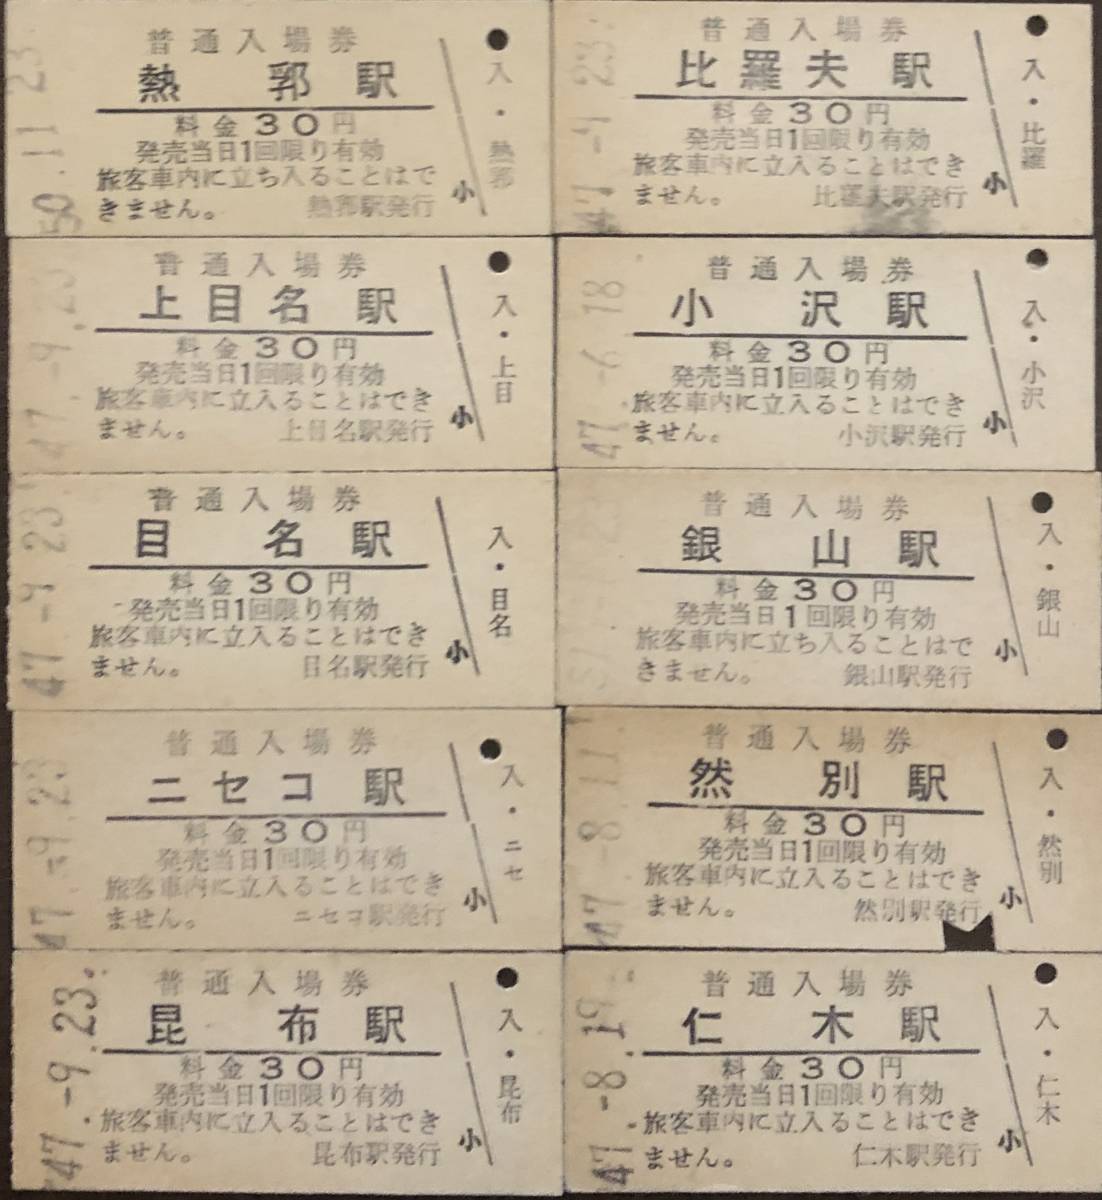 普通入場券
熱郛駅
料金30円
発売当日1回限り有効
旅客車内に立ち入ることはで
きません。 熱郛駅発行
小
入・熱郛
50.11.23
普通入場券
比羅夫駅
料金30円
発売当日1回限り有効
旅客車内に立入ることはでき
ません。 比羅夫駅発行
小
入・比羅
47.-9.23
普通入場券
上目名駅
料金30円
発売当日1回限り有効
旅客車内に立入ることはでき
ません。 上目名駅発行
小
入・上目
47.-9.23
普通入場券
小沢駅
料金30円
発売当日1回限り有効
旅客車内に立入ることはでき
ません。 小沢駅発行
小
入・小沢
47.-6.18
普通入場券
目名駅
料金30円
発売当日1回限り有効
旅客車内に立入ることはでき
ません。 目名駅発行
小
入・目名
47.-9.23
普通入場券
銀山駅
料金30円
発売当日1回限り有効
旅客車内に立ち入ることはで
きません。 銀山駅発行
小
入・銀山
普通入場券
ニセコ駅
料金30円
発売当日1回限り有効
旅客車内に立入ることはでき
ません。 ニセコ駅発行
小
入・ニセ
47.-9.23
普通入場券
然別駅
料金30円
発売当日1回限り有効
旅客車内に立入ることはでき
ません。 然別駅発行
小
入・然別
47.-8.11
普通入場券
昆布駅
料金30円
発売当日1回限り有効
旅客車内に立入ることはでき
ません。 昆布駅発行
小
入・昆布
47.-9.23
普通入場券
仁木駅
料金30円
発売当日1回限り有効
旅客車内に立入ることはでき
ません。 仁木駅発行
小
入・仁木
47.-8.19